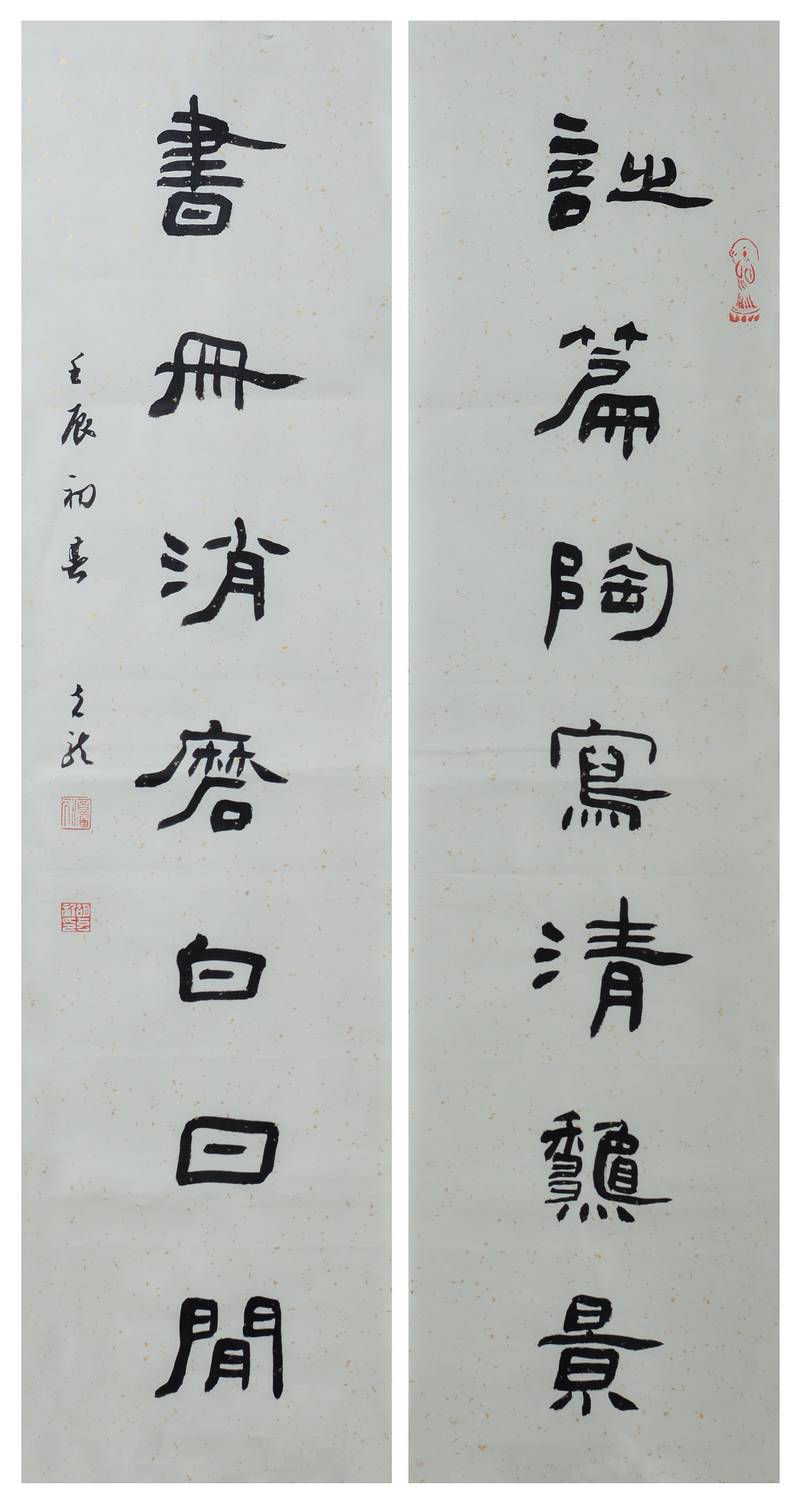 詩篇陶寫清龝景
書冊消磨白日閒
壬辰初春